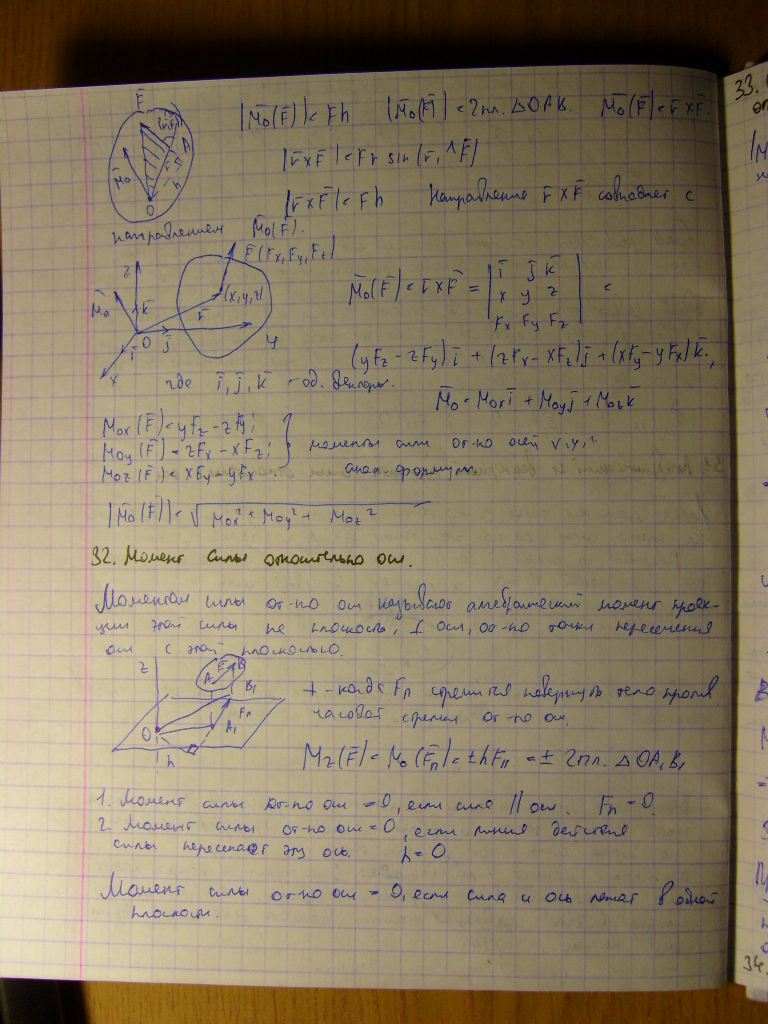 F̄
|M̄o(F̄)| = Fh |M̄o(F̄)| = 2пл. ΔOAB. M̄o(F̄) = r̄ × F̄.
|r̄ × F̄| = Fr sin(r̄, ^F̄)
|r̄ × F̄| = Fh Направление r̄ × F̄ совпадает с
направлением M̄o(F̄).
F̄(Fx, Fy, Fz)
z M̄o k̄ (x,y,z) r̄ O j̄ ī y x
M̄o(F̄) = r̄ × F̄ = | ī j̄ k̄ | =
x y z
Fx Fy Fz
(yFz - zFy) ī + (zFx - xFz) j̄ + (xFy - yFx) k̄,
где ī, j̄, k̄ - ед. векторы.
M̄o = Mox ī + Moy j̄ + Moz k̄
Mox(F̄) = yFz - zFy;
Moy(F̄) = zFx - xFz; моменты силы от-но осей x, y, z
Moz(F̄) = xFy - yFx. анал. формулы
|M̄o(F̄)| = √Mox² + Moy² + Moz²
32. Момент силы относительно оси.
Моментом силы от-но оси называют алгебраический момент проек-
ции этой силы на плоскость, ⊥ оси, от-но точки пересечения
оси с этой плоскостью.
z A F̄ B B₁ Fп O A₁ h
+ - когда Fп стремится повернуть тело против
часовой стрелки от-но оси.
Mz(F̄) = Mo(F̄п) = ±hFп = ± 2пл. ΔOA₁B₁
1. Момент силы от-но оси = 0, если сила || оси. Fп = 0.
2. Момент силы от-но оси = 0, если линия действия
силы пересекает эту ось. h = 0
Момент силы от-но оси = 0, если сила и ось лежат в одной
плоскости.
33.
34.